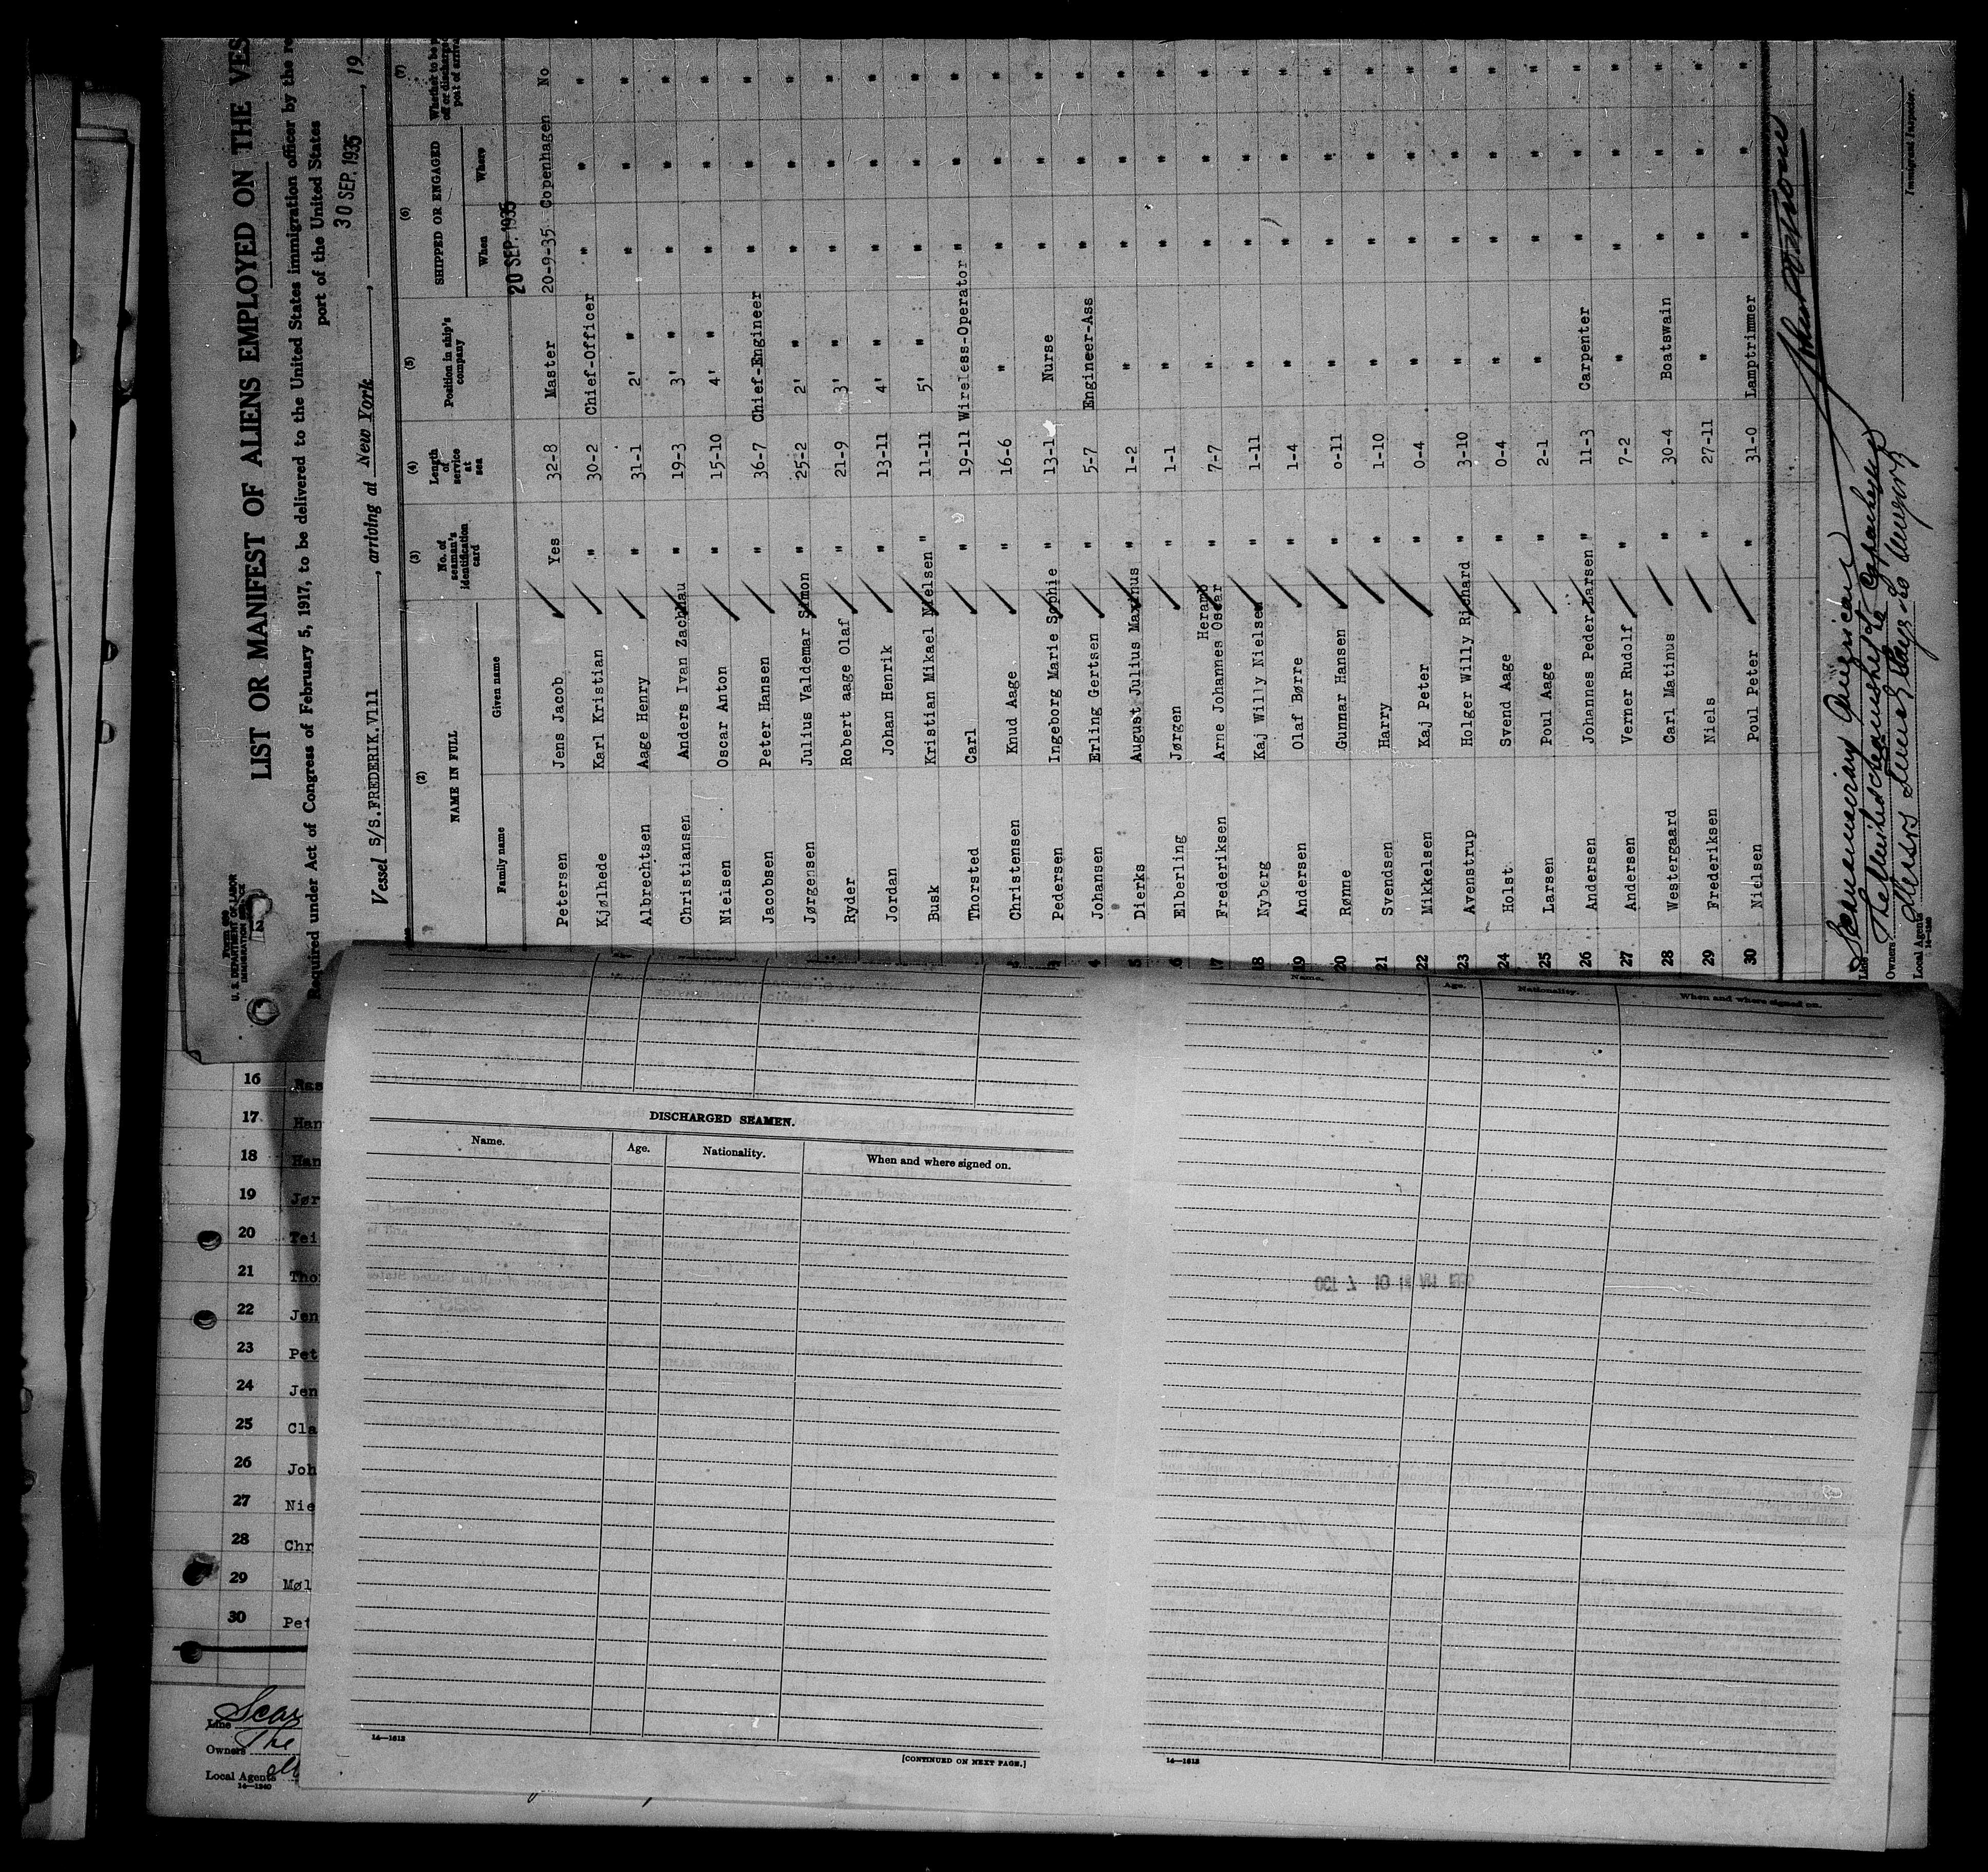 Form 689
U. S. DEPARTMENT OF LABOR
IMMIGRATION SERVICE
LIST OR MANIFEST OF ALIENS EMPLOYED ON THE VES
Required under Act of Congress of February 5, 1917, to be delivered to the United States immigration officer by the re
port of the United States
Vessel S/S.FREDERIK.V111, arriving at New York, 30 SEP. 1935, 19
(2) (3) (4) (5) (6) (7)
NAME IN FULL No. of seaman's identification card Length of service at sea Position in ship's company SHIPPED OR ENGAGED Whether to be p off or discharge port of arriva
Family name Given name When Where
20 SEP. 1935
Petersen Jens Jacob Yes 32-8 Master 20-9-35 Copenhagen No
Kjølhede Karl Kristian " 30-2 Chief-Officer " " "
Albrechtsen Aage Henry " 31-1 2' " " " "
Christiansen Anders Ivan Zachhau " 19-3 3' " " " "
Nielsen Oscar Anton " 15-10 4' " " " "
Jacobsen Peter Hansen " 36-7 Chief-Engineer " " "
Jørgensen Julius Valdemar Simon " 25-2 2' " " " "
Ryder Robert aage Olaf " 21-9 3' " " " "
Jordan Johan Henrik " 13-11 4' " " " "
Busk Kristian Mikael Nielsen " 11-11 5' " " " "
Thorsted Carl " 19-11 Wireless-Operator " " "
Christensen Knud Aage " 16-6 " " " "
3 Pedersen Ingeborg Marie Sophie " 13-1 Nurse " " "
4 Johansen Erling Gertsen " 5-7 Engineer-Ass " " "
5 Dierks August Julius Maximus " 1-2 " " " "
6 Elberling Jørgen " 1-1 " " " "
17 Frederiksen Arne Johannes Oscar Heramb " 7-7 " " " "
18 Nyberg Kaj Willy Nielsen " 1-11 " " " "
19 Andersen Olaf Børre " 1-4 " " " "
20 Rønne Gunnar Hansen " 0-11 " " " "
21 Svendsen Harry " 1-10 " " " "
22 Mikkelsen Kaj Peter " 0-4 " " " "
23 Avenstrup Holger Willy Richard " 3-10 " " " "
24 Holst Svend Aage " 0-4 " " " "
25 Larsen Poul Aage " 2-1 " " " "
26 Andersen Johannes Peder Larsen " 11-3 Carpenter " " "
27 Andersen Verner Rudolf " 7-2 " " " "
28 Westergaard Carl Matinus " 30-4 Boatswain " " "
29 Frederiksen Niels " 27-11 " " " "
30 Nielsen Poul Peter " 31-0 Lamptrimmer " " "
Line Scandinavian American
Owners The United Steamship Co Copenhagen
Local Agents Messrs
14—1240
Immigrant Inspector.
16 Ras
17 Han
18 Han
19 Jør
20 Tei
21 Tho
22 Jen
23 Pet
24 Jen
25 Cla
26 Joh
27 Nie
28 Chr
29 Møl
30 Pet
Line Scan
Owners The
Local Agents
14—1240
DISCHARGED SEAMEN.
Name. Age. Nationality. When and where signed on.
14—1613
[CONTINUED ON NEXT PAGE.]
Name. Age. Nationality. When and where signed on.
14—1613